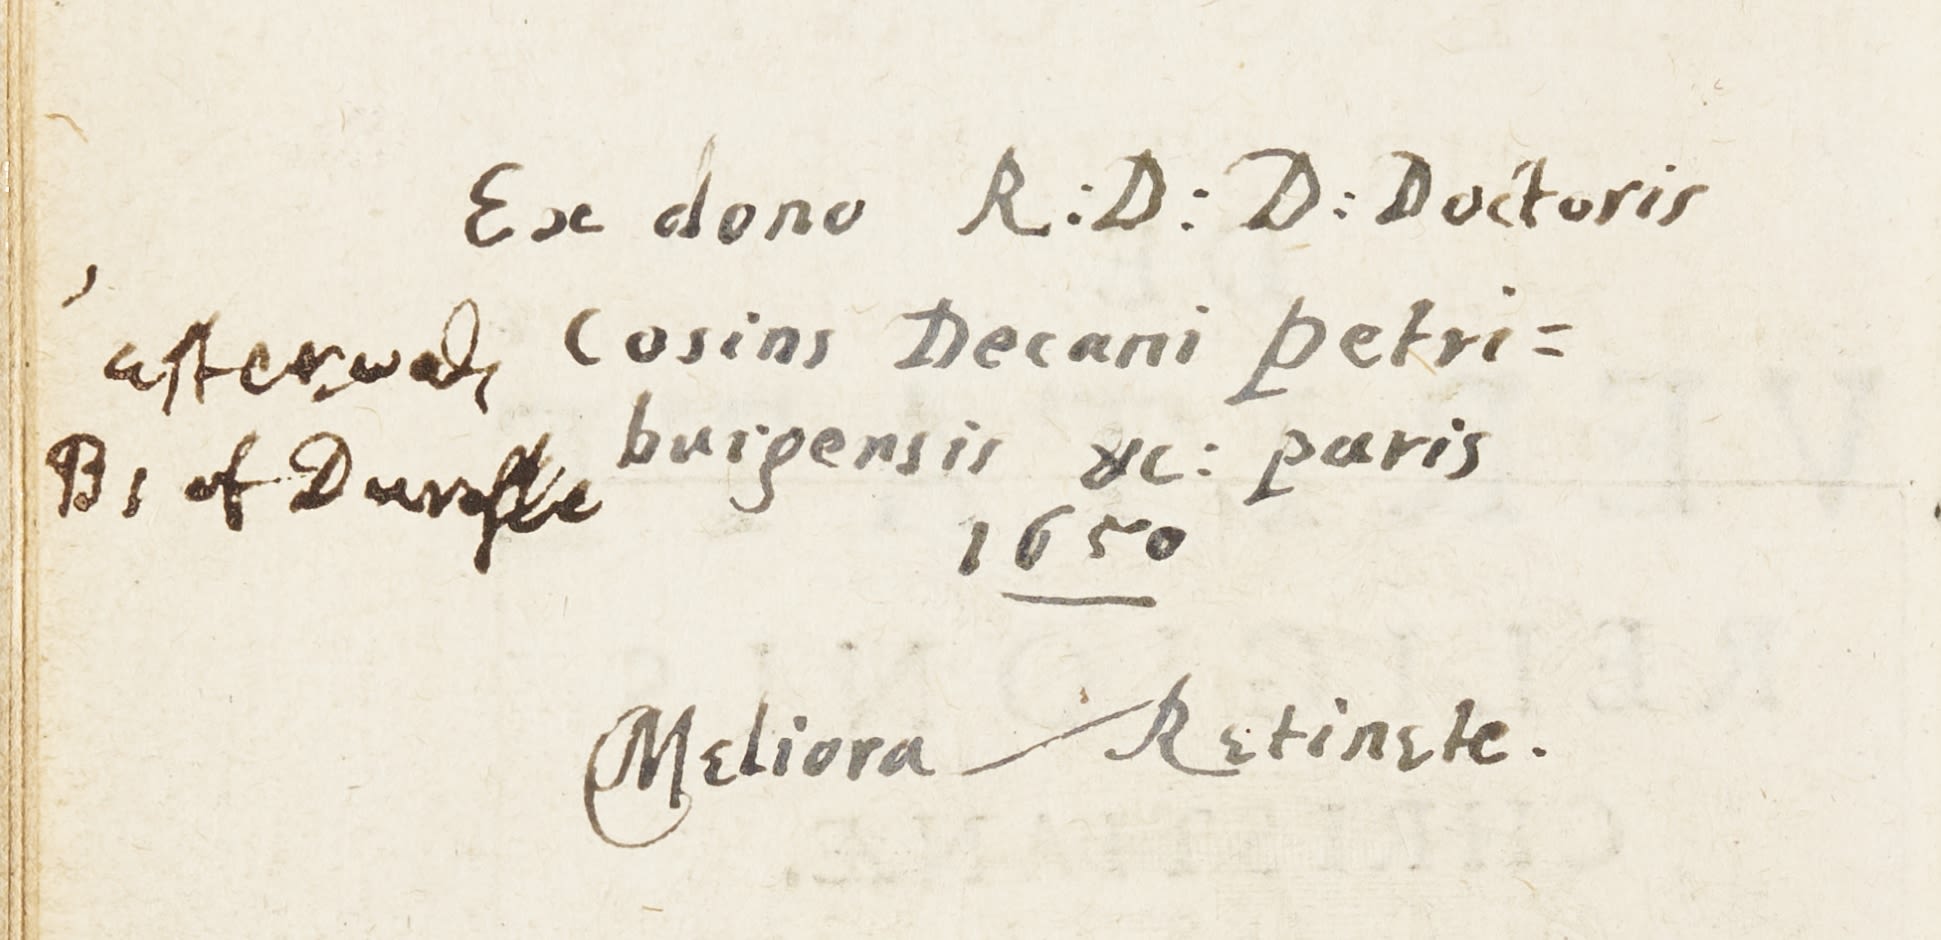 Ex dono R: D: D: Doctoris
Cosins Decani Petri=
burgensis &c: paris
1650
Meliora Retinete.
afterwads
Bs of Duresme